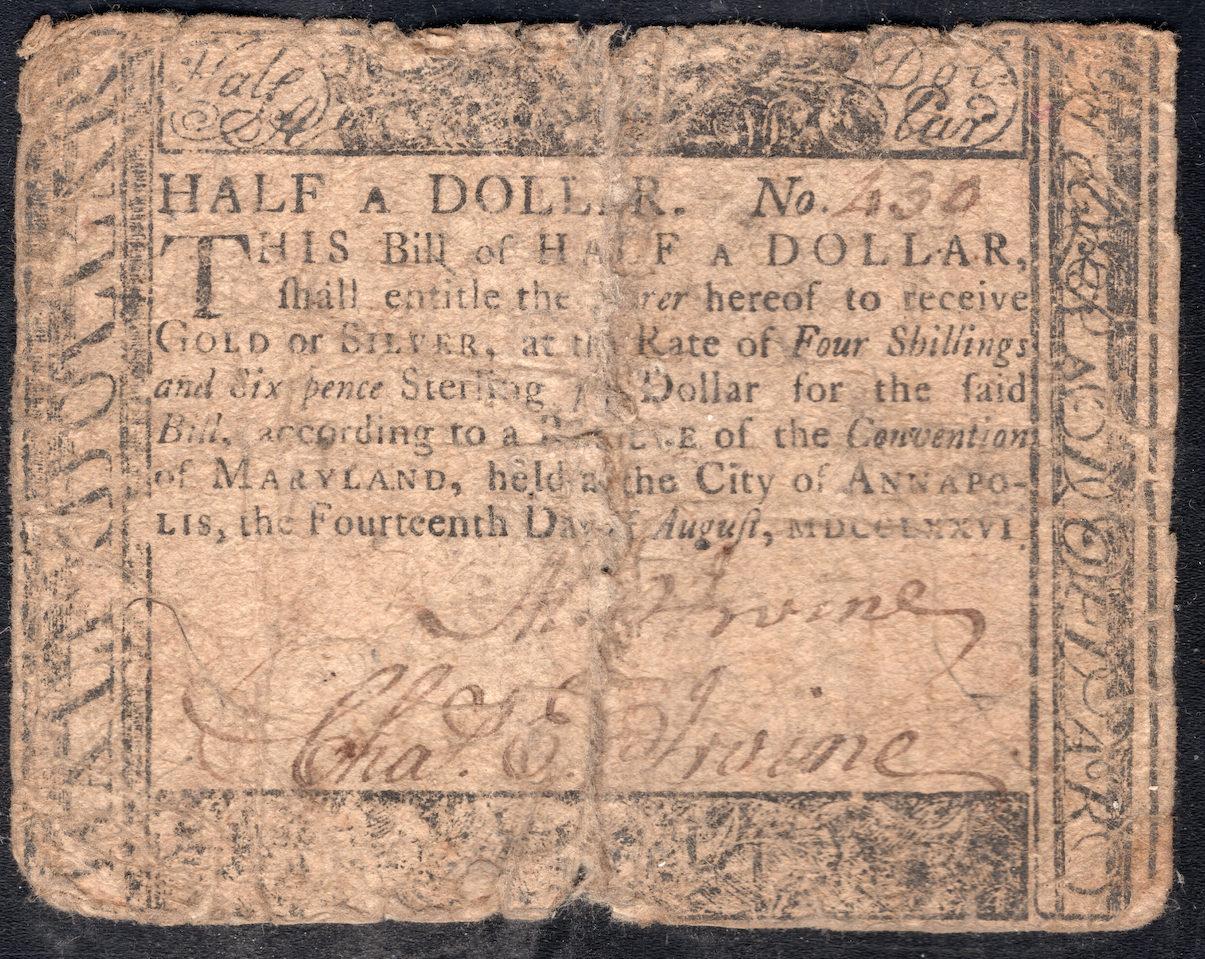 Half
A
Dol-
lar
HALF A DOLLAR. No. 430
THIS Bill of HALF A DOLLAR,
ſhall entitle the Bearer hereof to receive
GOLD or SILVER, at the Rate of Four Shillings
and Six pence Sterling per Dollar for the ſaid
Bill, according to a RESOLVE of the Convention
of MARYLAND, held at the City of ANNAPO-
LIS, the Fourteenth Day of Auguſt, MDCCLXXVI.
Irvine
Chaˢ. E. Irvine
HALF A DOLLAR
HALF A DOLLAR